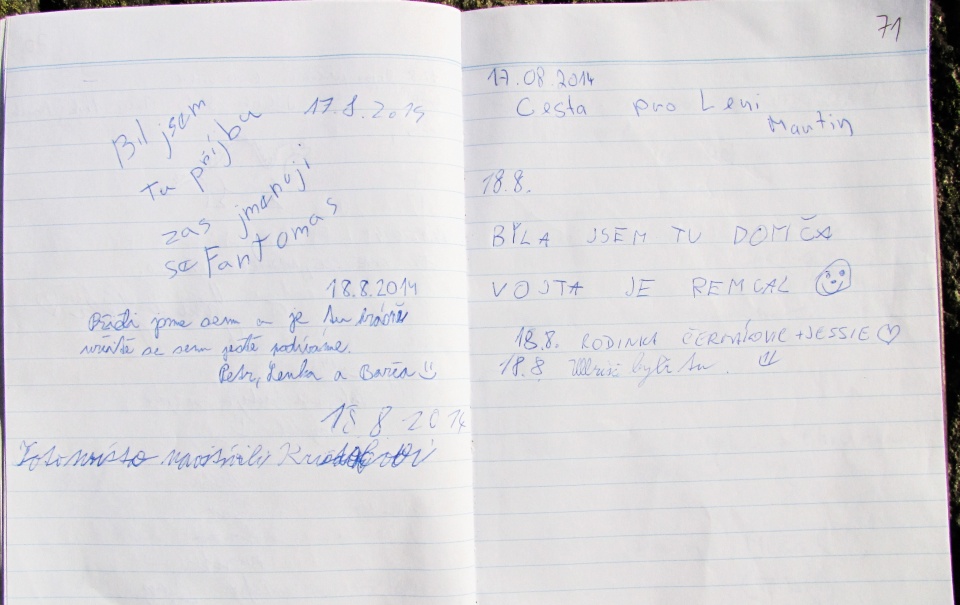 17.8.2014
Bil jsem
tu přijba
zas jmenuji
se Fantomas
18.8.2014
Přišli jsme sem a je tu krásně
určitě se sem ještě podíváme.
Petr, Lenka a Barča
18 8 2014
Toto místo navštívili
71
17.08.2014
Cesta pro Leni
Martin
18.8.
BYLA JSEM TU DOMČA
VOJTA JE REMCAL
18.8. RODINKA ČERMÁKOVIC + JESSIE
18.8. byli tu.